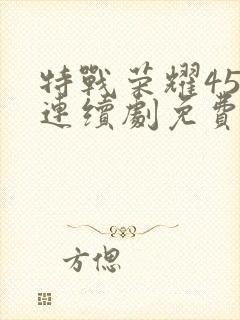 特戰荣耀45
連續劇免費
方偲